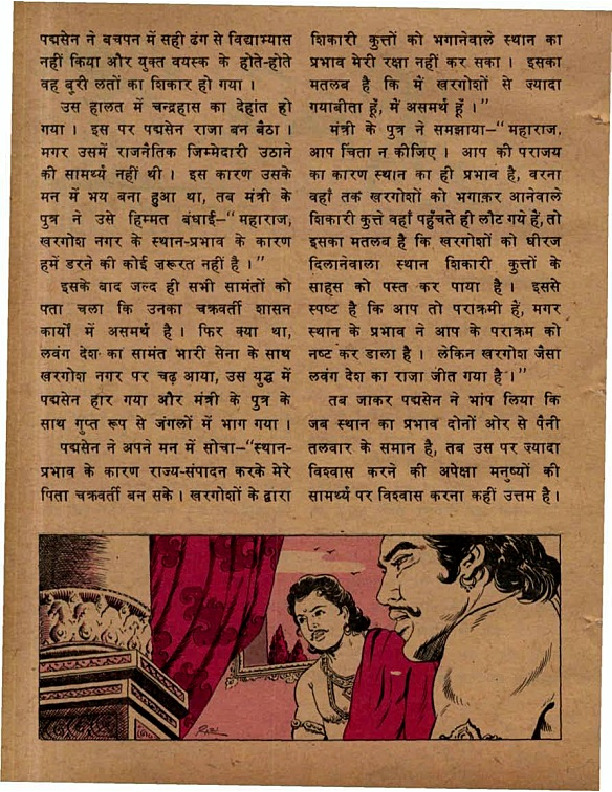 पद्मसेन ने बचपन में सही ढंग से विद्याभ्यास
नहीं किया और युक्त वयस्क के होते-होते
वह बुरी लतों का शिकार हो गया ।
उस हालत में चन्द्रहास का देहांत हो
गया । इस पर पद्मसेन राजा बन बैठा ।
मगर उसमें राजनैतिक जिम्मेदारी उठाने
की सामर्थ्य नहीं थी । इस कारण उसके
मन में भय बना हुआ था, तब मंत्री के
पुत्र ने उसे हिम्मत बंधाई–“महाराज,
खरगोश नगर के स्थान-प्रभाव के कारण
हमें डरने की कोई जरूरत नहीं है ।”
इसके बाद जल्द ही सभी सामंतों को
पता चला कि उनका चक्रवर्ती शासन
कार्यों में असमर्थ है । फिर क्या था,
लवंग देश का सामंत भारी सेना के साथ
खरगोश नगर पर चढ़ आया, उस युद्ध में
पद्मसेन हार गया और मंत्री के पुत्र के
साथ गुप्त रूप से जंगलों में भाग गया ।
पद्मसेन ने अपने मन में सोचा–“स्थान-
प्रभाव के कारण राज्य-संपादन करके मेरे
पिता चक्रवर्ती बन सके । खरगोशों के द्वारा
शिकारी कुत्तों को भगानेवाले स्थान का
प्रभाव मेरी रक्षा नहीं कर सका । इसका
मतलब है कि में खरगोशों से ज्यादा
गयाबीता हूँ, में असमर्थ हूँ ।”
मंत्री के पुत्र ने समझाया–“महाराज,
आप चिंता न कीजिए । आप की पराजय
का कारण स्थान का ही प्रभाव है, वरना
वहाँ तक खरगोशों को भगाकर आनेवाले
शिकारी कुत्ते वहाँ पहुँचते ही लौट गये हैं, तो
इसका मतलब है कि खरगोशों को धीरज
दिलानेवाला स्थान शिकारी कुत्तों के
साहस को पस्त कर पाया है । इससे
स्पष्ट है कि आप तो पराक्रमी हैं, मगर
स्थान के प्रभाव ने आप के पराक्रम को
नष्ट कर डाला है । लेकिन खरगोश जैसा
लवंग देश का राजा जीत गया है ।”
तब जाकर पद्मसेन ने भांप लिया कि
जब स्थान का प्रभाव दोनों ओर से पैनी
तलवार के समान है, तब उस पर ज्यादा
विश्वास करने की अपेक्षा मनुष्यों की
सामर्थ्य पर विश्वास करना कहीं उत्तम है ।